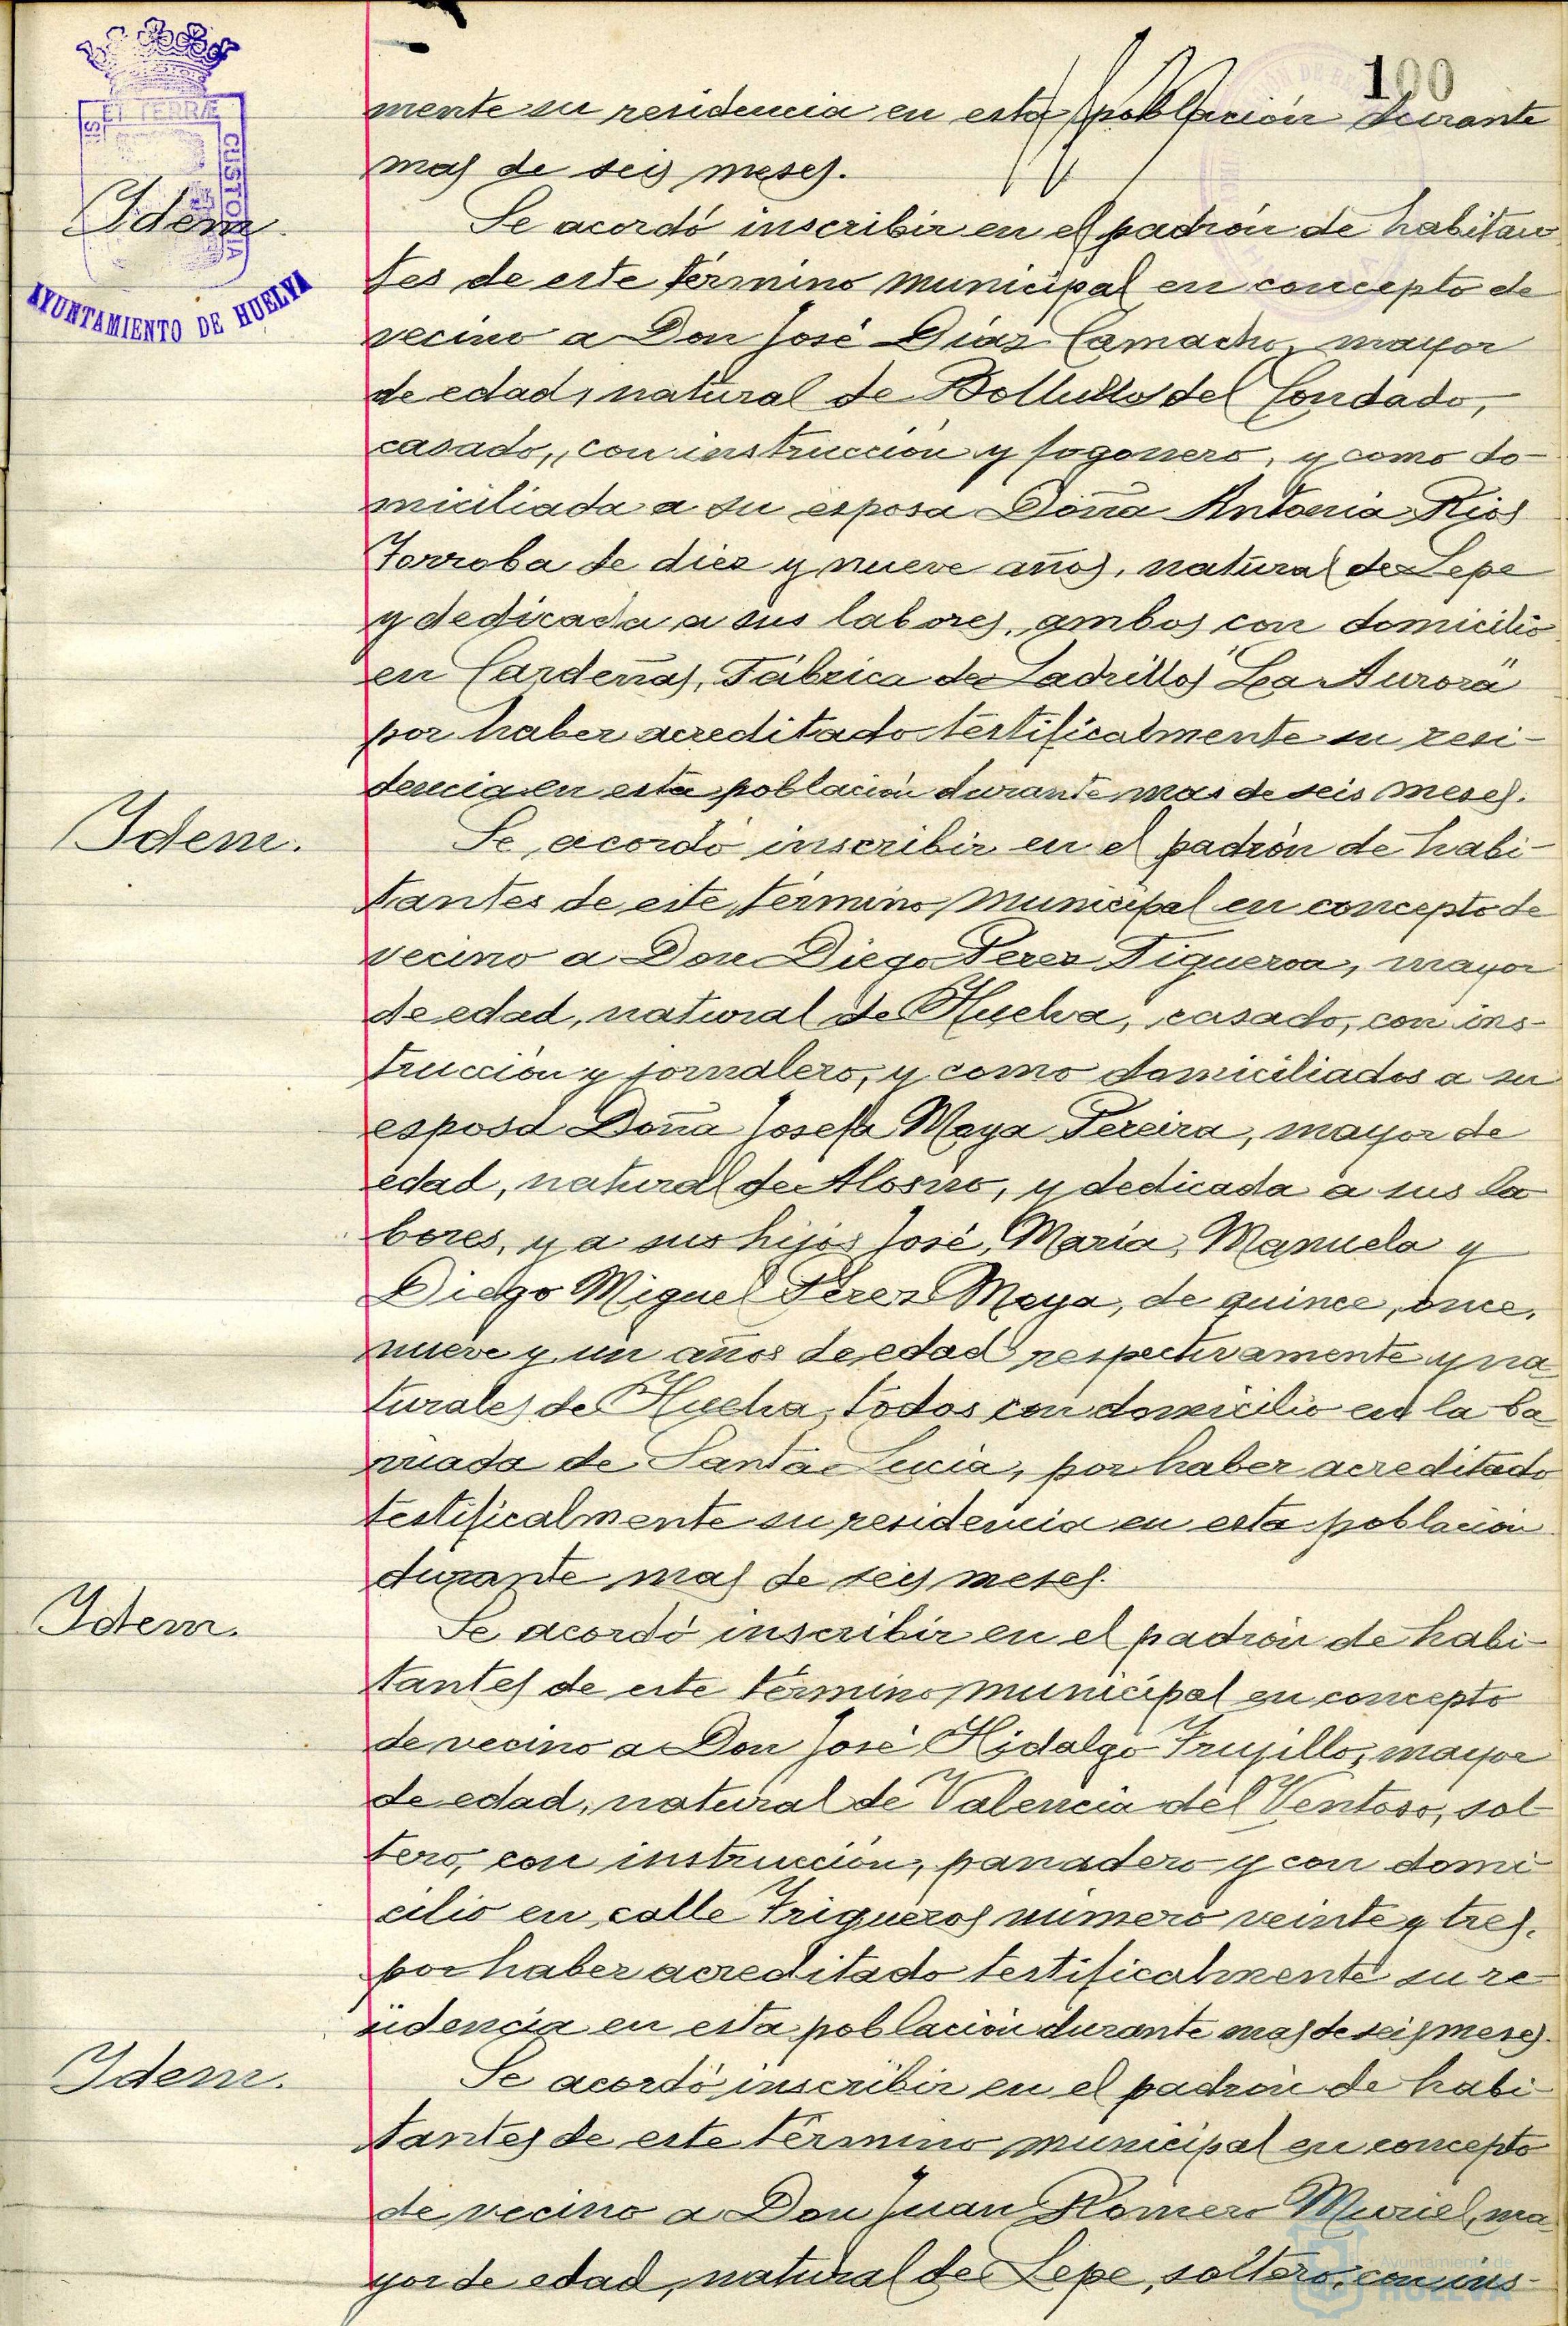 100
mente su residencia en esta población durante
mas de seis meses.
Idem.
ET TERRÆ
CUSTODIA
AYUNTAMIENTO DE HUELVA
Se acordó inscribir en el padrón de habitan
tes de este término municipal en concepto de
vecino a Don José Diaz Camacho, mayor
de edad, natural de Bollullos del Condado,
casado, con instrucción y fogonero, y como do-
miciliada a su esposa Doña Antonia Rios
Torroba de diez y nueve años, natural de Lepe
y dedicada a sus labores, ambos con domicilio
en Cardeñas, Fábrica de Ladrillos "La Aurora"
por haber acreditado testificalmente su resi-
dencia en esta población durante mas de seis meses.
Idem.
Se acordó inscribir en el padrón de habi-
tantes de este término municipal en concepto de
vecino a Don Diego Perez Figueroa, mayor
de edad, natural de Huelva, casado, con ins-
trucción y jornalero, y como domiciliados a su
esposa Doña Josefa Maya Pereira, mayor de
edad, natural de Alosno, y dedicada a sus la
bores, y a sus hijos José, María, Manuela y
Diego Miguel Pérez Maya, de quince, once,
nueve y un años de edad respectivamente y na
turales de Huelva, todos con domicilio en la ba
rriada de Santa Lucia, por haber acreditado
testificalmente su residencia en esta población
durante mas de seis meses.
Idem.
Se acordó inscribir en el padrón de habi-
tantes de este término municipal en concepto
de vecino a Don José Hidalgo Trujillo, mayor
de edad, natural de Valencia del Ventoso, sol
tero, con instrucción, panadero y con domi
cilio en calle Trigueros número veinte y tres,
por haber acreditado testificalmente su re
sidencia en esta población durante mas de seis meses.
Idem.
Se acordó inscribir en el padrón de habi-
tantes de este término municipal en concepto
de vecino a Don Juan Romero Muriel, ma
yor de edad, natural de Lepe, soltero, con ins-
Ayuntamiento de
HUELVA